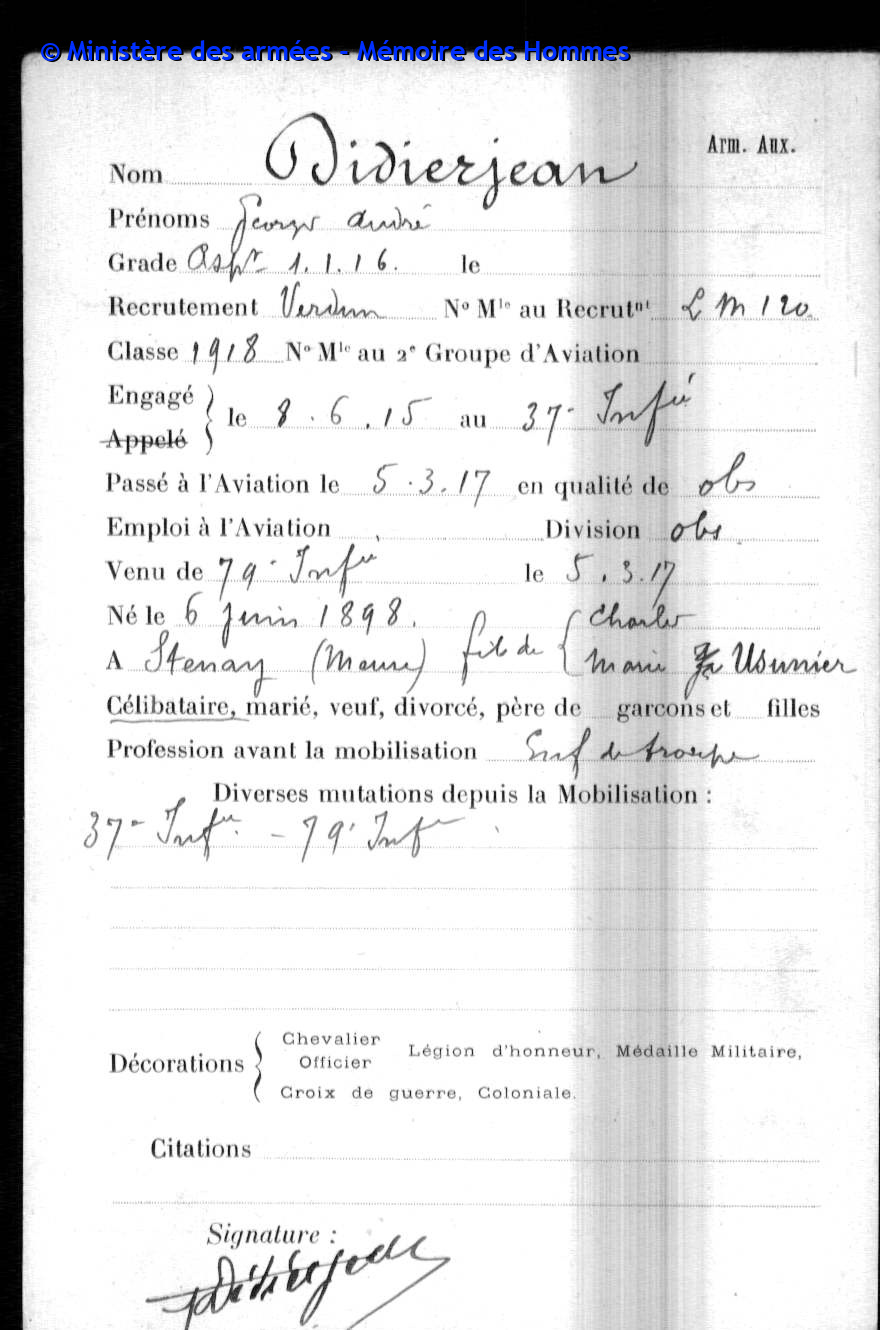 © Ministère des armées - Mémoire des Hommes
Arm. Aux.
Nom Didierjean
Prénoms Georges André
Grade Aspt 1.1.16. le
Recrutement Verdun No Mle au Recrutnt L M 120
Classe 1918 No Mle au 2e Groupe d'Aviation
Engagé
Appelé
le 8.6.15 au 37e Infie
Passé à l'Aviation le 5.3.17 en qualité de obs
Emploi à l'Aviation Division obs
Venu de 79e Infie le 5.3.17
Né le 6 juin 1898. Charles
A Stenay (Meuse) fils de Marie Usunier
Célibataire, marié, veuf, divorcé, père de garçons et filles
Profession avant la mobilisation Enf de troupe
Diverses mutations depuis la Mobilisation :
37e Infie - 79e Infie
Décorations
Chevalier
Officier
Légion d'honneur, Médaille Militaire,
Croix de guerre, Coloniale.
Citations
Signature :
Didierjean